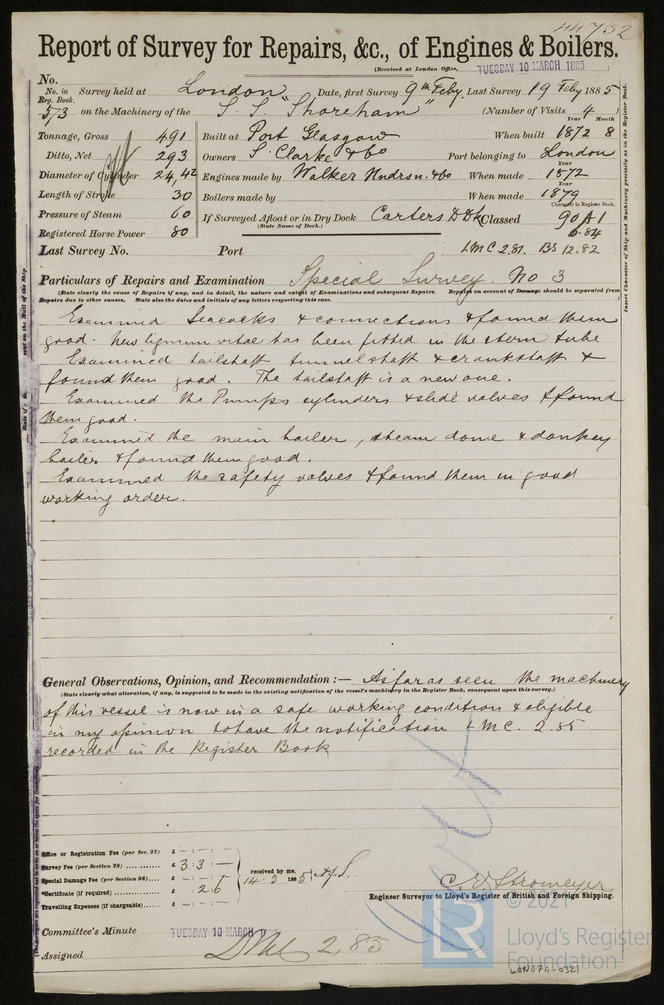 44732
Report of Survey for Repairs, &c., of Engines & Boilers.
(Received at London Office, TUESDAY 10 MARCH 1885
No.
No. in Reg. Book. Survey held at London Date, first Survey 9th Feby. Last Survey 19 Feby 1885
573 on the Machinery of the S. S. "Shoreham" (Number of Visits 4
Tonnage, Gross 491 Built at Port Glasgow When built 1872 8
Ditto, Net 293 Owners S. Clarke & Co Port belonging to London
Diameter of Cylinder 24, 42 Engines made by Walker Hndrsn. & Co When made 1872
Length of Stroke 30 Boilers made by When made 1879
Pressure of Steam 60 If Surveyed Afloat or in Dry Dock Carters D Dk Classed 90 A1
(State Name of Dock.)
Registered Horse Power 80 6.84
Last Survey No. Port LMC 2,81. BS 12.82
Particulars of Repairs and Examination Special Survey. No 3
(State clearly the cause of Repairs if any, and in detail, the nature and extent of Examinations and subsequent Repairs. Repairs on account of Damage should be separated from
Repairs due to other causes. State also the dates and initials of any letters respecting this case.
Examined Seacocks & connections & found them
good. New lignum vitae has been fitted in the stern tube
Examined tailshaft tunnelshaft & crankshaft &
found them good. The tailshaft is a new one.
Examined the Pumps cylinders & slide valves & found
them good.
Examined the main boiler, steam dome & donkey
boiler & found them good.
Examined the safety valves & found them in good
working order.
General Observations, Opinion, and Recommendation :— As far as seen the machinery
(State clearly what alteration, if any, is suggested to be made in the existing notification of the vessel's machinery in the Register Book, consequent upon this survey.)
of this vessel is now in a safe working condition & eligible
in my opinion to have the notification LMC. 2.85
recorded in the Register Book
Office or Registration Fee (per Sec. 27) £ - : - : -
Survey Fee (per Section 28) £ 3 : 3 : —
Special Damage Fee (per Section 28) £ - : - : -
Certificate (if required) £ - : 2 6
Travelling Expenses (if chargeable) £ - : - : -
received by me, 14.3 1885
C. E. Stromeyer
Engineer Surveyor to Lloyd's Register of British and Foreign Shipping.
Committee's Minute TUESDAY 10 MARCH 1885
Assigned LMC 2,85
LR
© 2021
Lloyd's Register
Foundation
LON674-0321